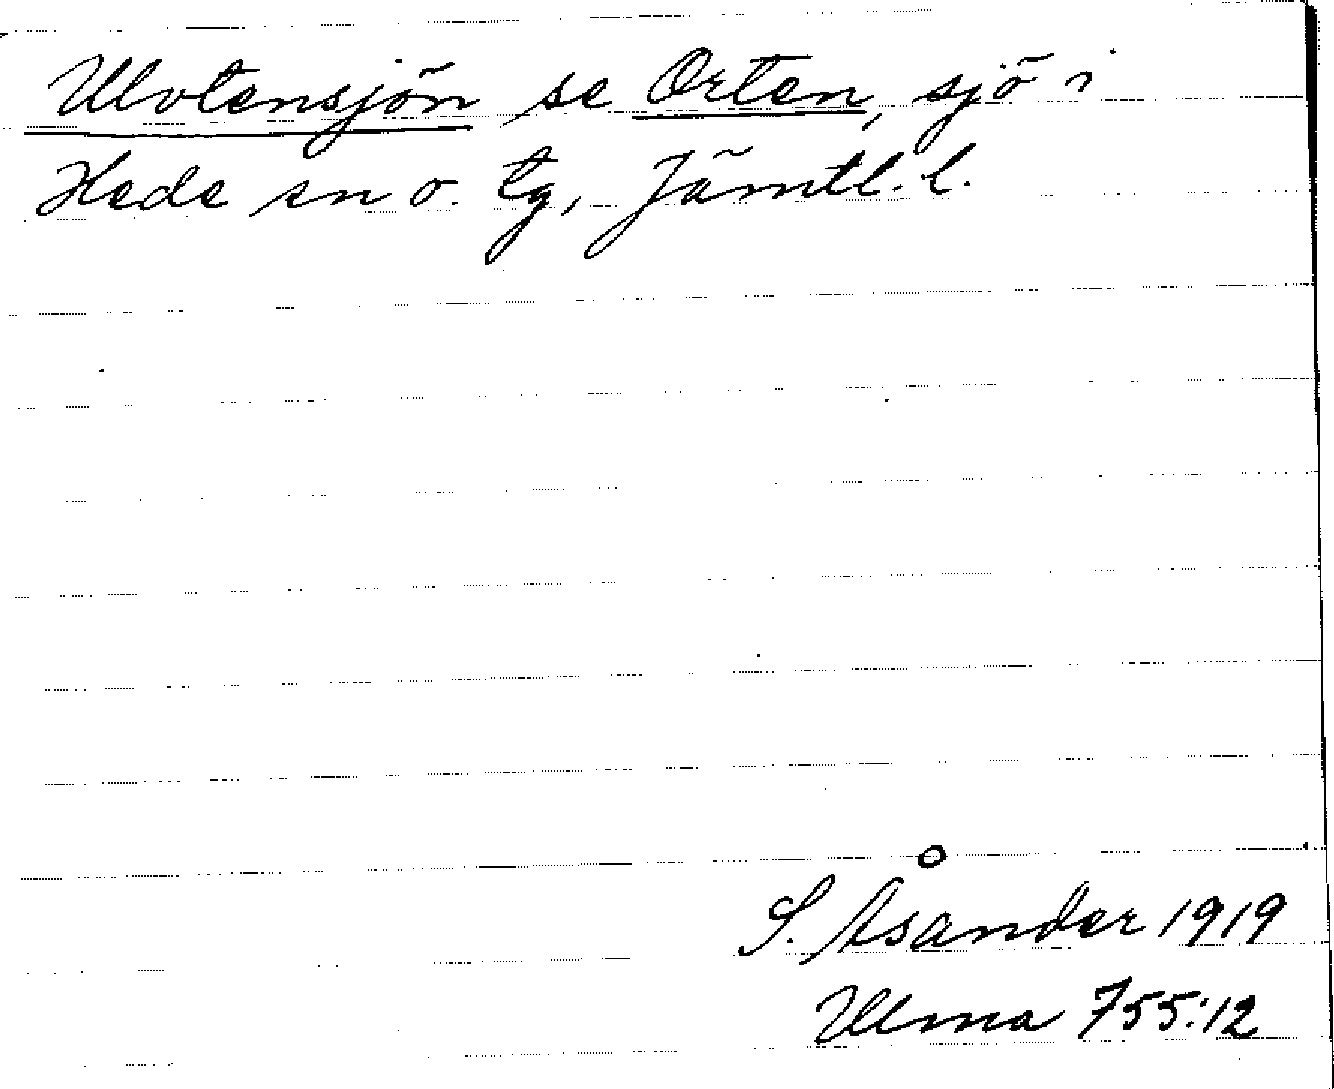 Ulvtensjön se Orten, sjö i
Hede sn o. tg, Jämtl. l.
S. Åsander 1919
Ulma 755:12